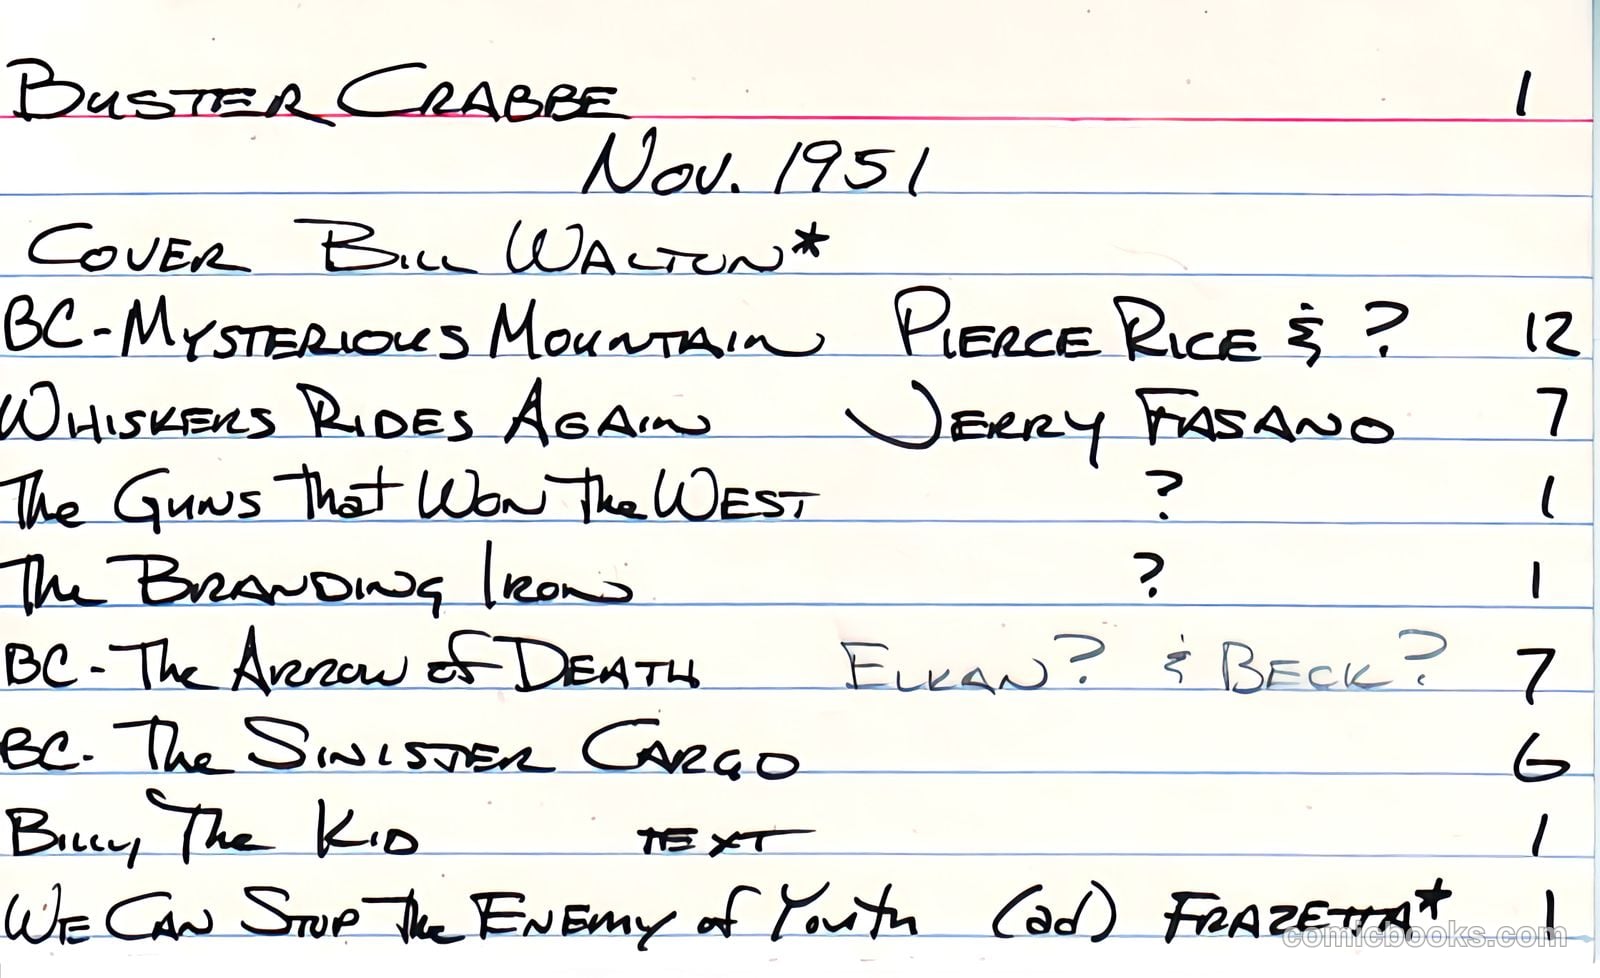 BUSTER CRABBE 1
Nov. 1951
COVER BILL WALTON*
BC-MYSTERIOUS MOUNTAIN PIERCE RICE & ? 12
WHISKERS RIDES AGAIN JERRY FASANO 7
The GUNS That WON The WEST ? 1
The BRANDING IRON ? 1
BC - The ARROW of DEATH ELKAN? & BECK? 7
BC- The SINISTER CARGO 6
BILLY The KID TEXT 1
WE CAN STOP The ENEMY of Youth (ad) FRAZETTA* 1
comicbooks.com